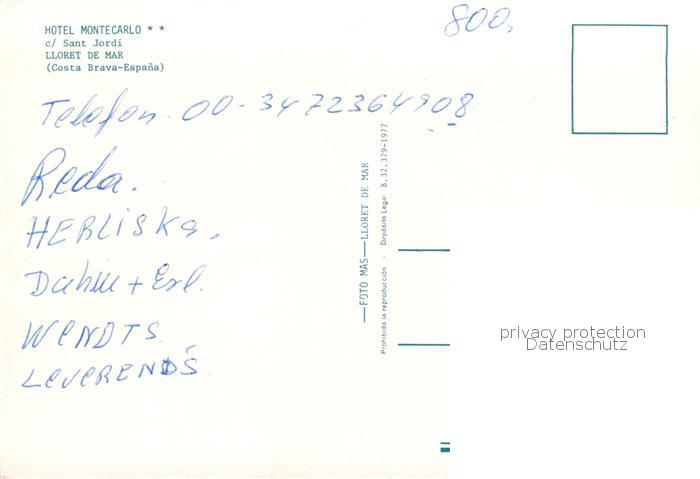 HOTEL MONTECARLO * *
c/ Sant Jordi
LLORET DE MAR
(Costa Brava-España)
800,
Telefon. 00-3472364908
Reda.
HERLISKA,
Dahm + Erl.
WENDTS
LEVERENDS
—FOTO MAS—LLORET DE MAR
Prohibida la reproducción - Depósito Legal B.32.379-1977
privacy protection
Datenschutz